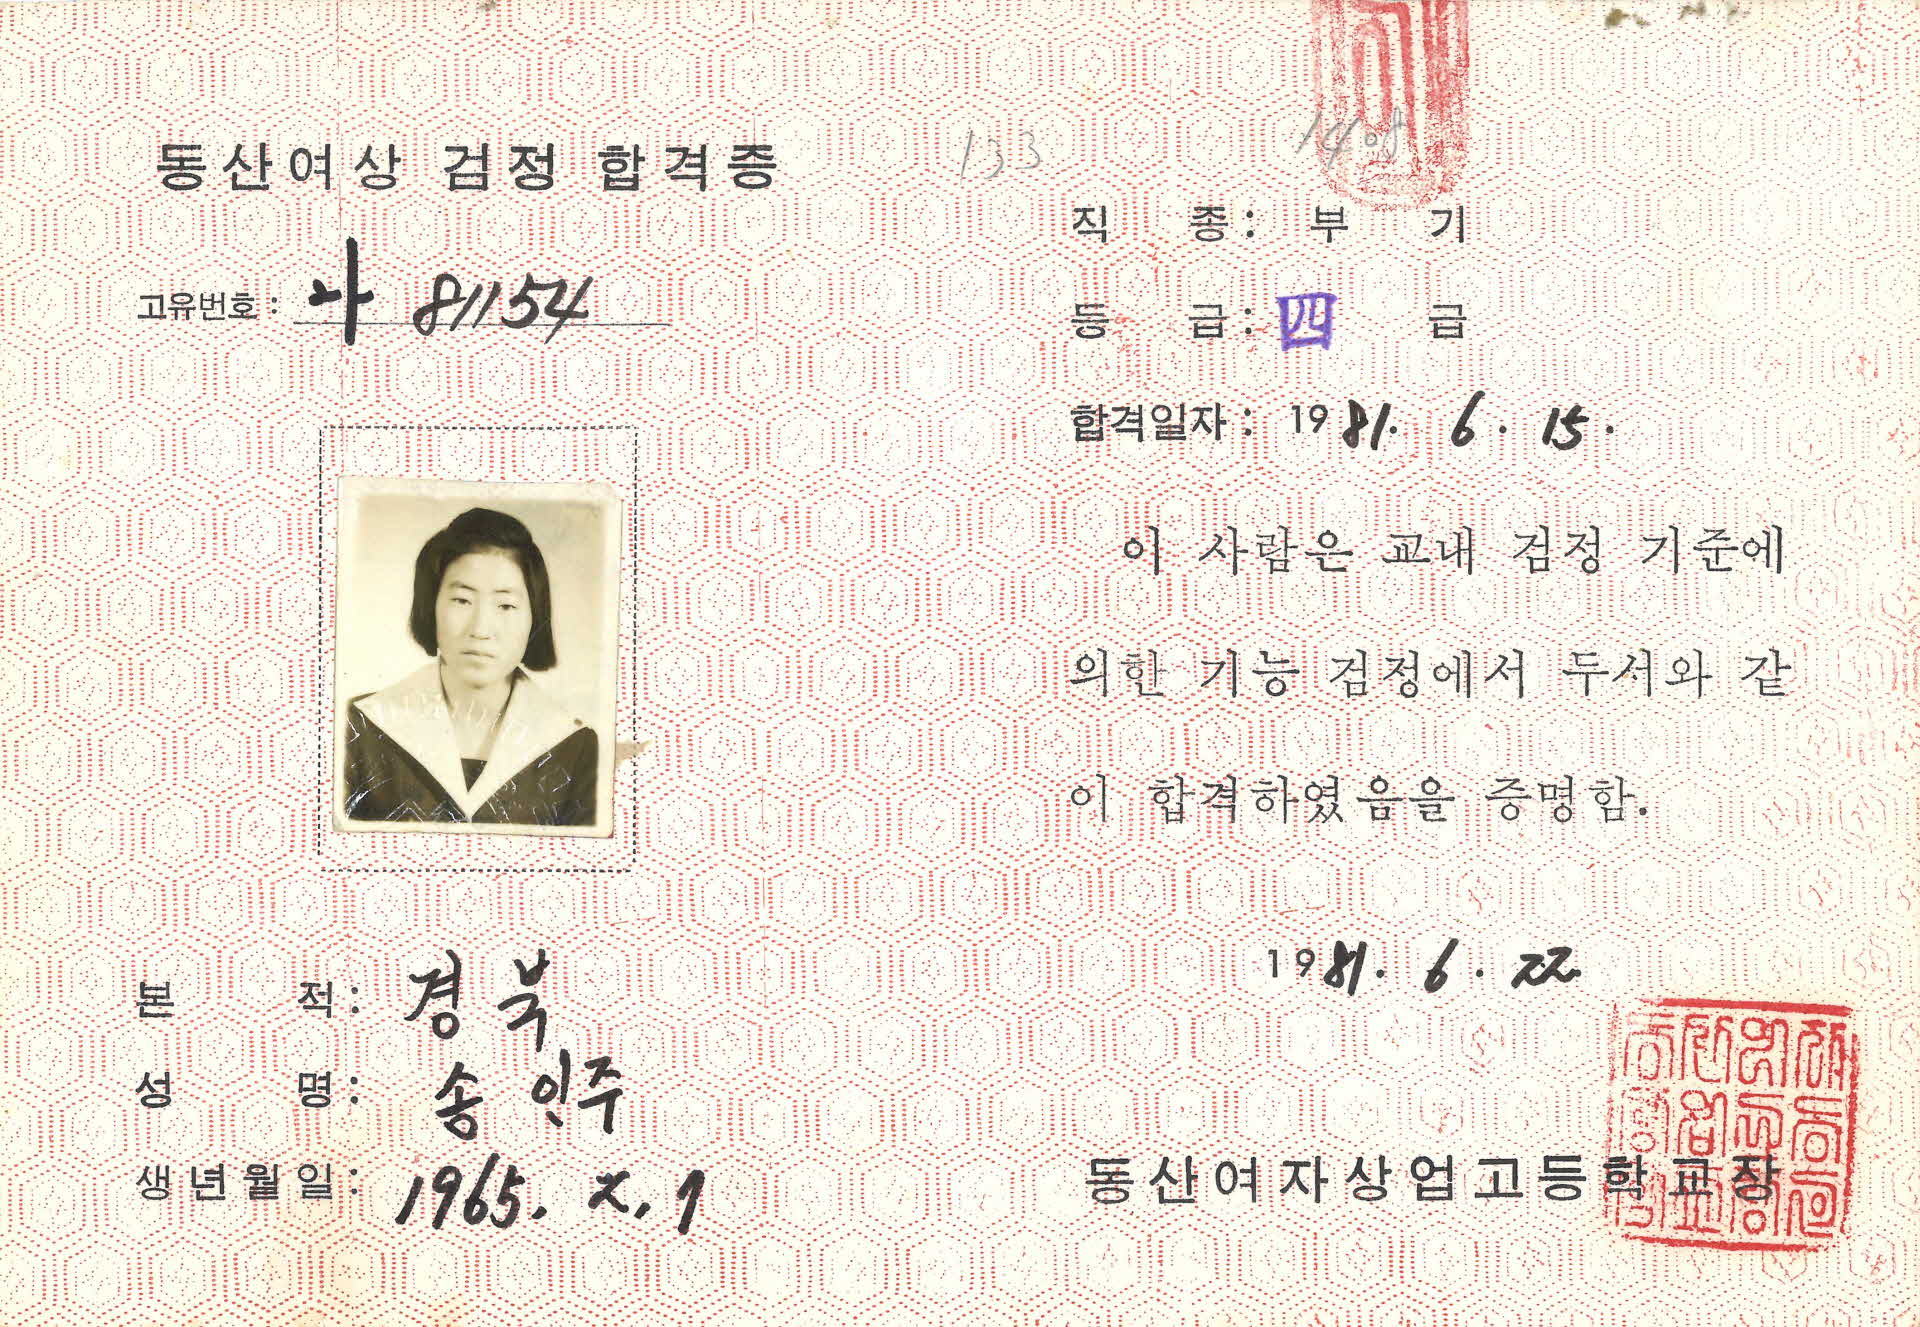 동산여상 검정 합격증
133
1408
고유번호: 나 81154
직 종: 부 기
등 급: 四 급
합격일자: 1981. 6. 15.
이 사람은 교내 검정 기준에
의한 기능 검정에서 두서와 같
이 합격하였음을 증명함.
1981. 6. 22.
본 적: 경북
성 명: 송인주
생년월일: 1965. 2. 7
동산여자상업고등학교장